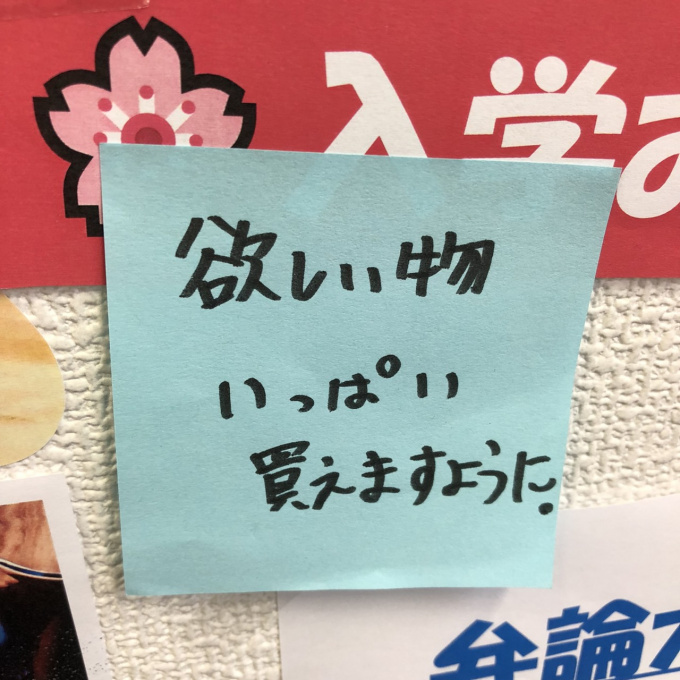 入学
欲しい物
いっぱい
買えますように.
弁論